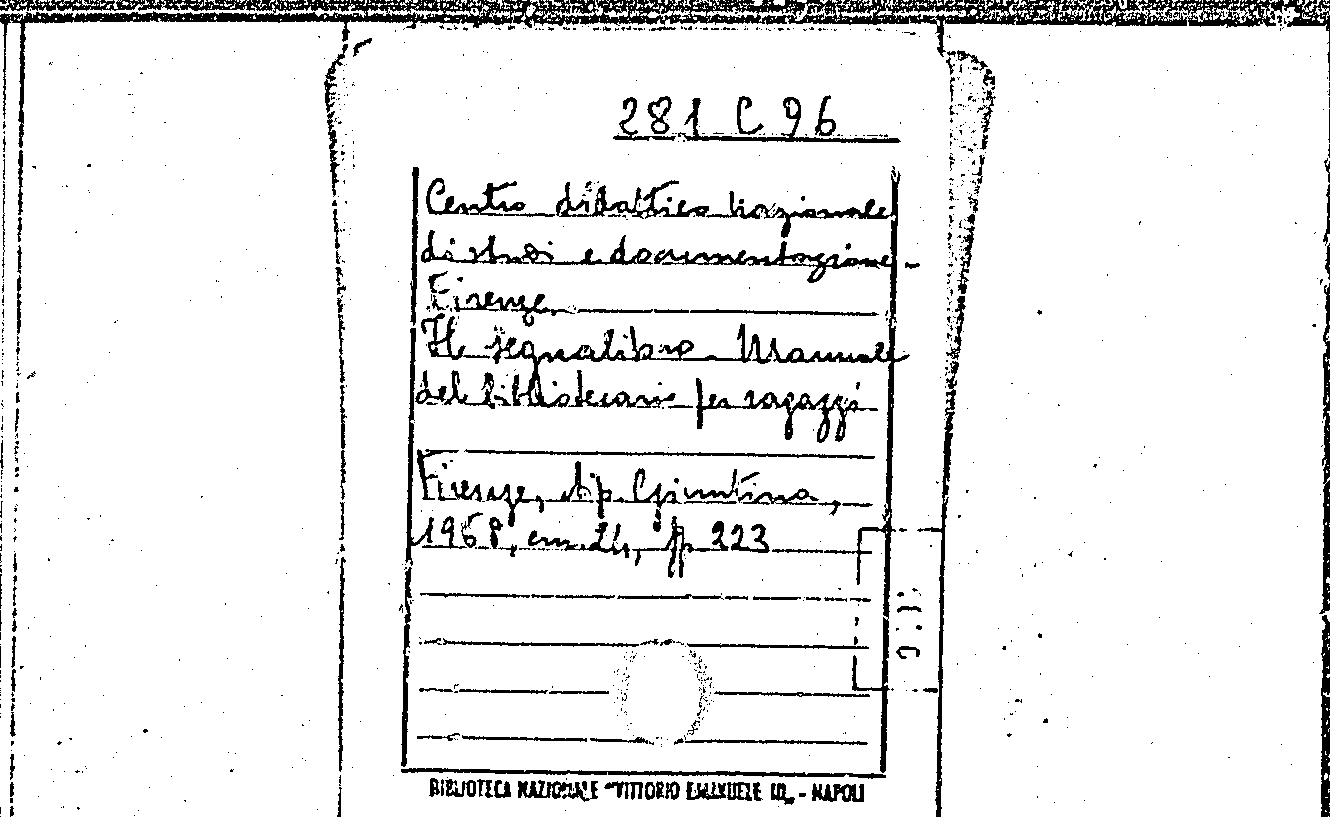 281 C 96
Centro didattico nazionale
di studi e documentazione -
Firenze
Il segnalibro. Manuale
del bibliotecario per ragazzi
Firenze, tip. Giuntina,
1958, cm. 24, pp. 223
BIBLIOTECA NAZIONALE "VITTORIO EMANUELE III„ - NAPOLI